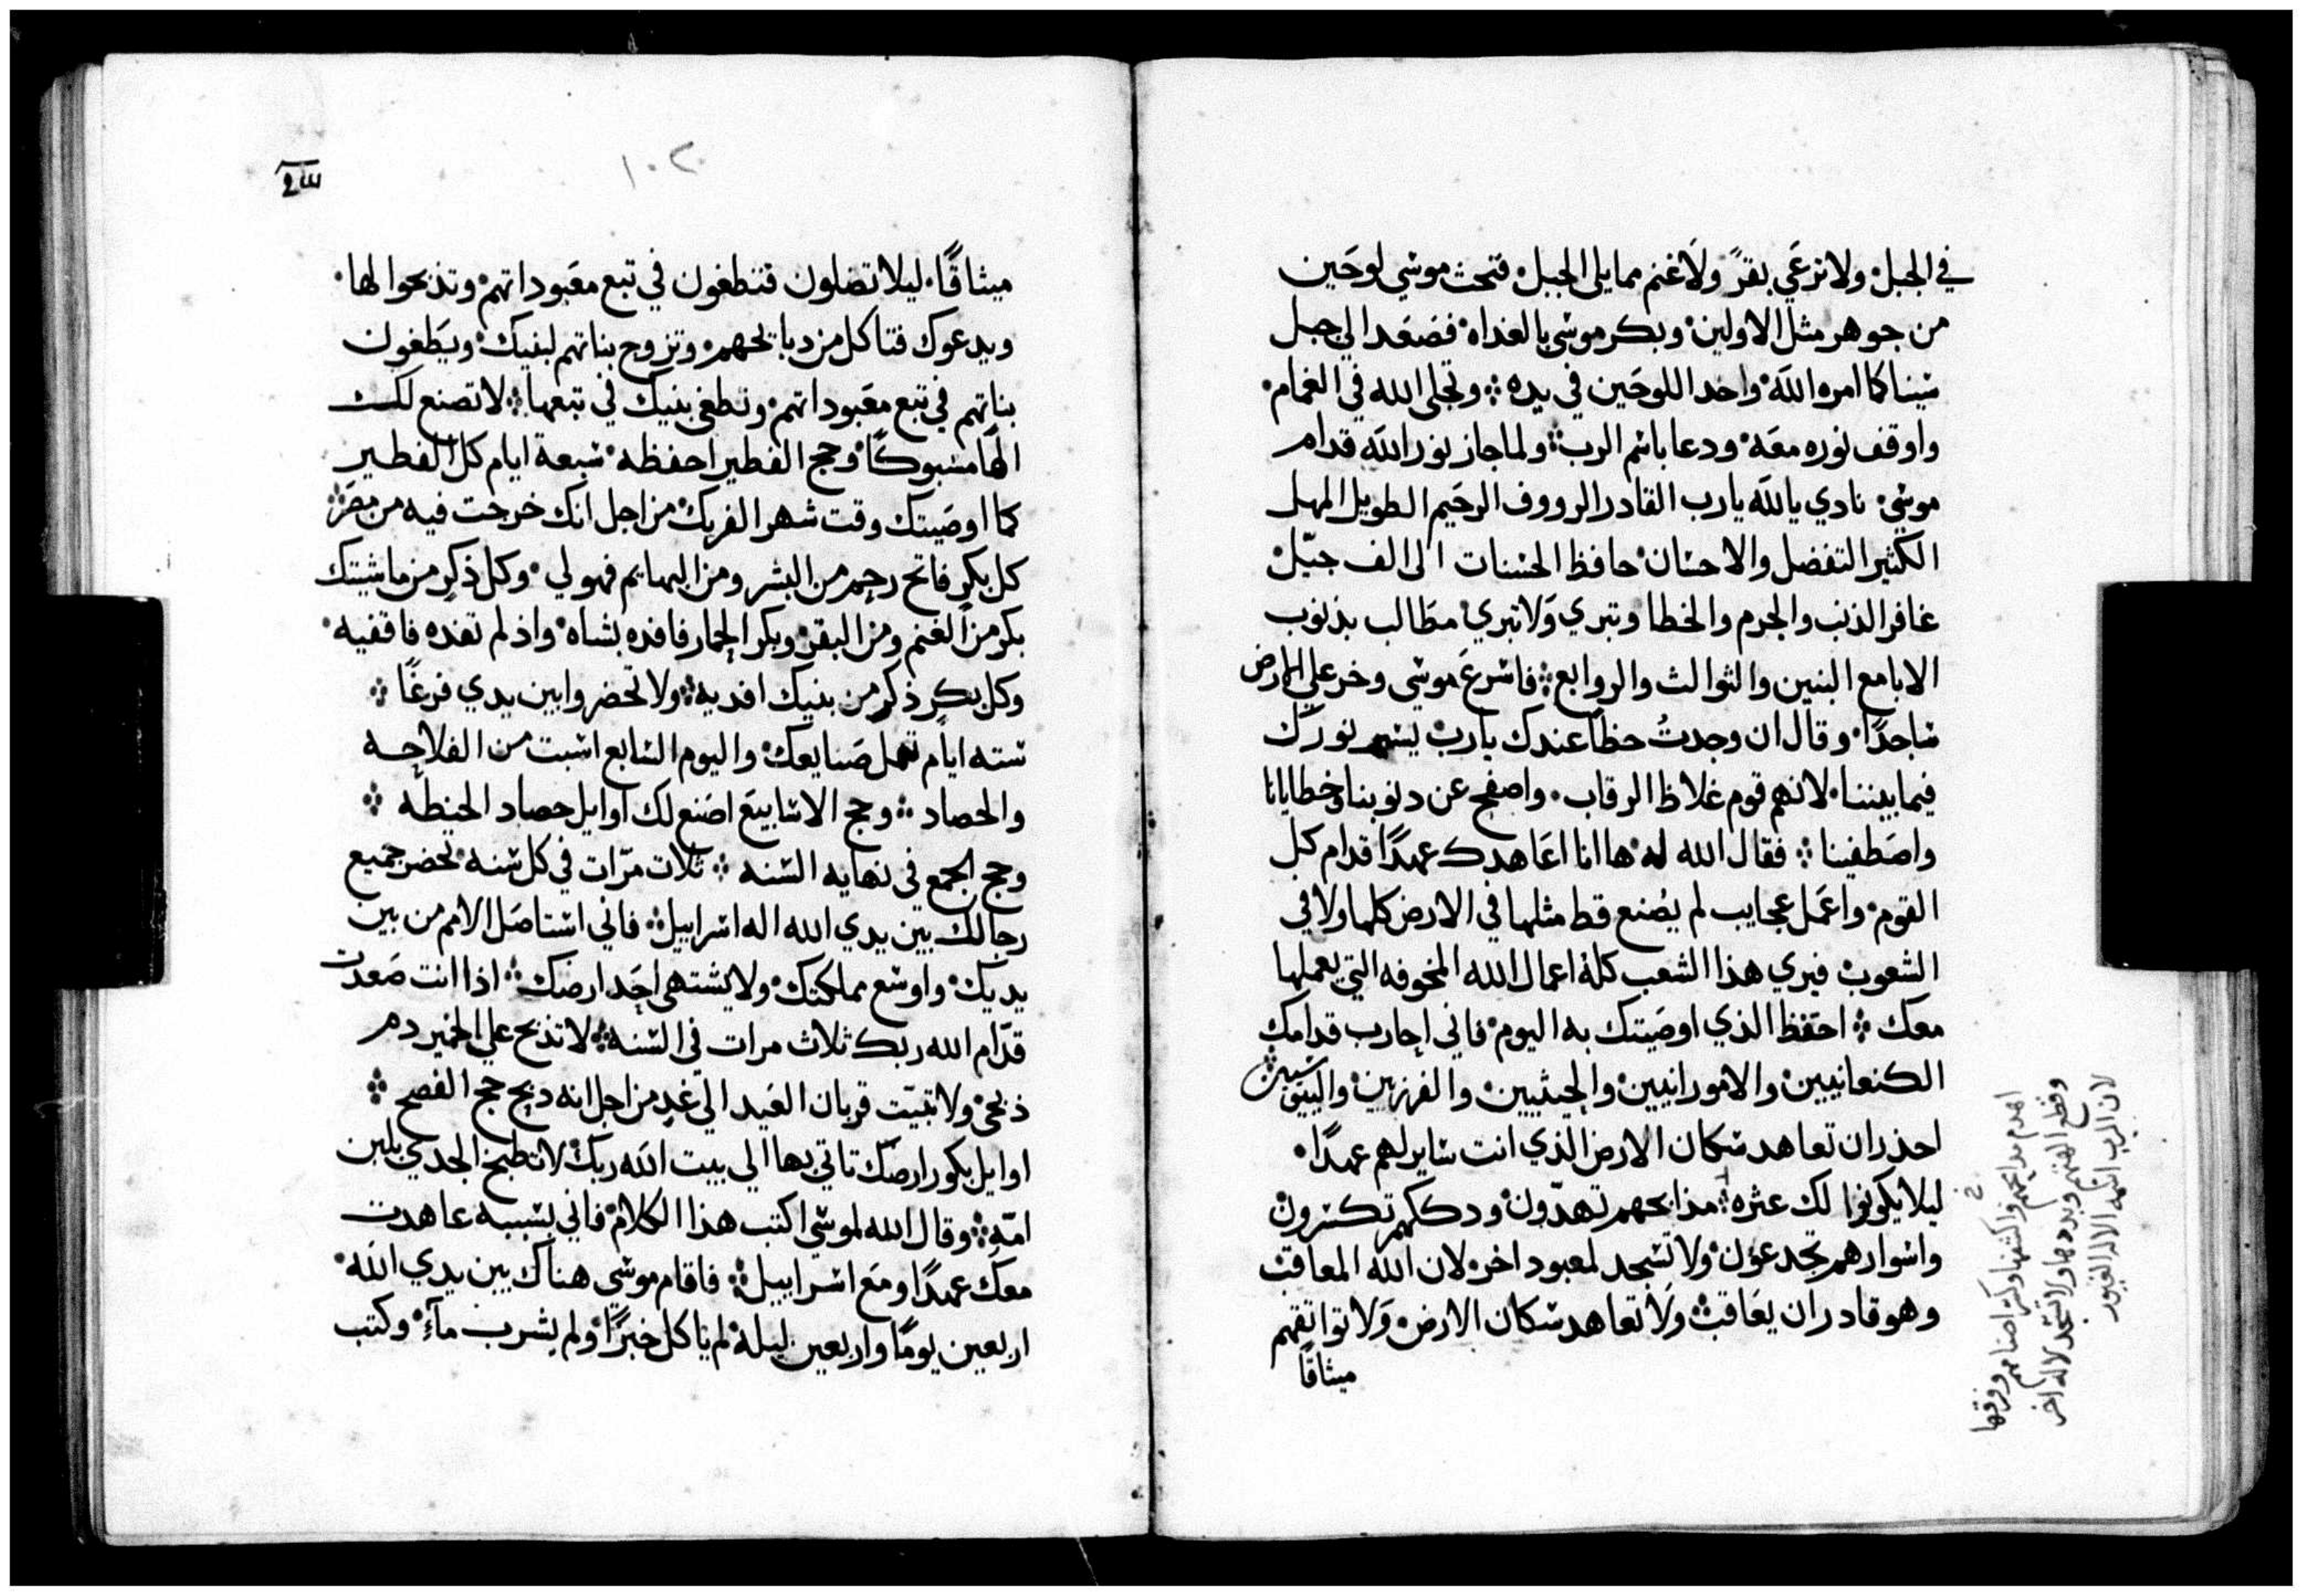 في الجبل ولا ترعي بقرً ولا غنم مما يلي الجبل فنحت موسي لوحين
من جوهر مثل الاولين وبكر موسي بالغداه فصعد الي جبل
سينا كما امره الله واخد اللوحين في يده وتجلي الله في الغمام
واوقف نوره معه ودعا باسم الرب ولما جاز نور الله قدام
موسي نادي يالله يارب القادر الرووف الرحيم الطويل المهل
الكثير التفضل والاحسان حافظ الحسنات الى الف جيل
غافر الذنب والجرم والخطا وتبري ولا تبري مطالب بذنوب
الابا مع البنين والثوالث والروابع فاسرع موسي وخر علي الارض
ساجدًا وقال ان وجدتُ حظا عندك يارب يسير نورك
فيما بيننا لانهم قوم غلاظ الرقاب واصفح عن دنوبنا وخطايانا
واصطفينا فقال الله له ها انا اعاهدك عهدًا قدام كل
القوم واعمل عجايب لم يُصنع قط مثلها في الارض كلها ولا في
الشعوب فيري هذا الشعب كله اعمال الله المخوفه التي يعملها
معك احتفظ الذي اوصيتك به اليوم فاني احارب قدامك
الكنعانيين والامورانيين والحيثيين والفرزيين واليبوسيين
احذر ان تعاهد سكان الارض الذي انت ساير لهم عهدًا
ليلا يكونوا لك عثره مذابحهم تهدّون ودككهم تكسرون
واسوارهم تجدعون ولا تسجد لمعبود اخر لان الله المعاقب
وهو قادر ان يعاقب ولا تعاهد سكان الارض ولا تواثقهم
ميثاقًا
اهدم مدابحهم واكسر اصنامهم
وقطع الهتهم ولا تسجد لاله اخر
لان الرب اسمه الاله الغيور
١٠٢
ميثاقًا ليلا تضلون فتطغون في تبع معبوداتهم وتذبحوا لها
ويدعوك فتاكل من دبايحهم وتزوج بناتهم لبنيك ويطغون
بناتهم في تبع معبوداتهم وتطغي بنيك في تبعها لا تصنع لك
الهًا مسبوكًا وحج الفطير احفظه سبعة ايام كل الفطير
كما اوصيتك وقت شهر الفريك من اجل انك خرجت فيه من مصر
كل بكرٍ فاتح رحم من البشر ومن البهايم فهو لي وكل ذكرٍ من ماشيتك
بكر من الغنم ومن البقر وبكر الحمار فافده بشاه واذ لم تفده فاقفيه
وكل بكرٍ ذكرٍ من بنيك افديه ولا تحضروا بين يدي فرغًا
سته ايام تعمل صنايعك واليوم السابع اسبت من الفلاحه
والحصاد وحج الاسابيع اصنع لك اوايل حصاد الحنطه
وحج الجمع في نهايه السنه ثلاث مرّات في كل سنه تحضر جميع
رجالك بين يدي الله اله اسراييل فاني استاصل الامم من بين
يديك واوسع مملكتك ولا يشتهي احد ارضك اذا انت صعدت
قدّام الله ربك ثلاث مرات في السنه لا تذبح علي الخمير دم
ذبحي ولا تبيّت قربان العيد الي غدٍ من اجل انه دبيح حج الفصح
اوايل بكور ارضك تاتي بها الي بيت الله ربك لا تطبخ الجدي بلبن
امّهِ وقال الله لموسي اكتب هذا الكلام فاني بسببه عاهدت
معك عهدًا ومع اسراييل فاقام موسي هناك بين يدي الله
اربعين يومًا واربعين ليلة لم ياكل خبزًا ولم يشرب مآءً وكتب